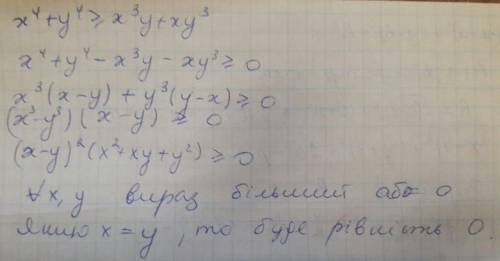 x⁴+y⁴ ⩾ x³y+xy³
x⁴+y⁴-x³y-xy³ ⩾ 0
x³(x-y) + y³(y-x) ⩾ 0
(x³-y³)(x-y) ⩾ 0
(x-y)²(x²+xy+y²) ⩾ 0
∀x,y вираз більший або 0
Якщо x=y, то буде рівність 0.